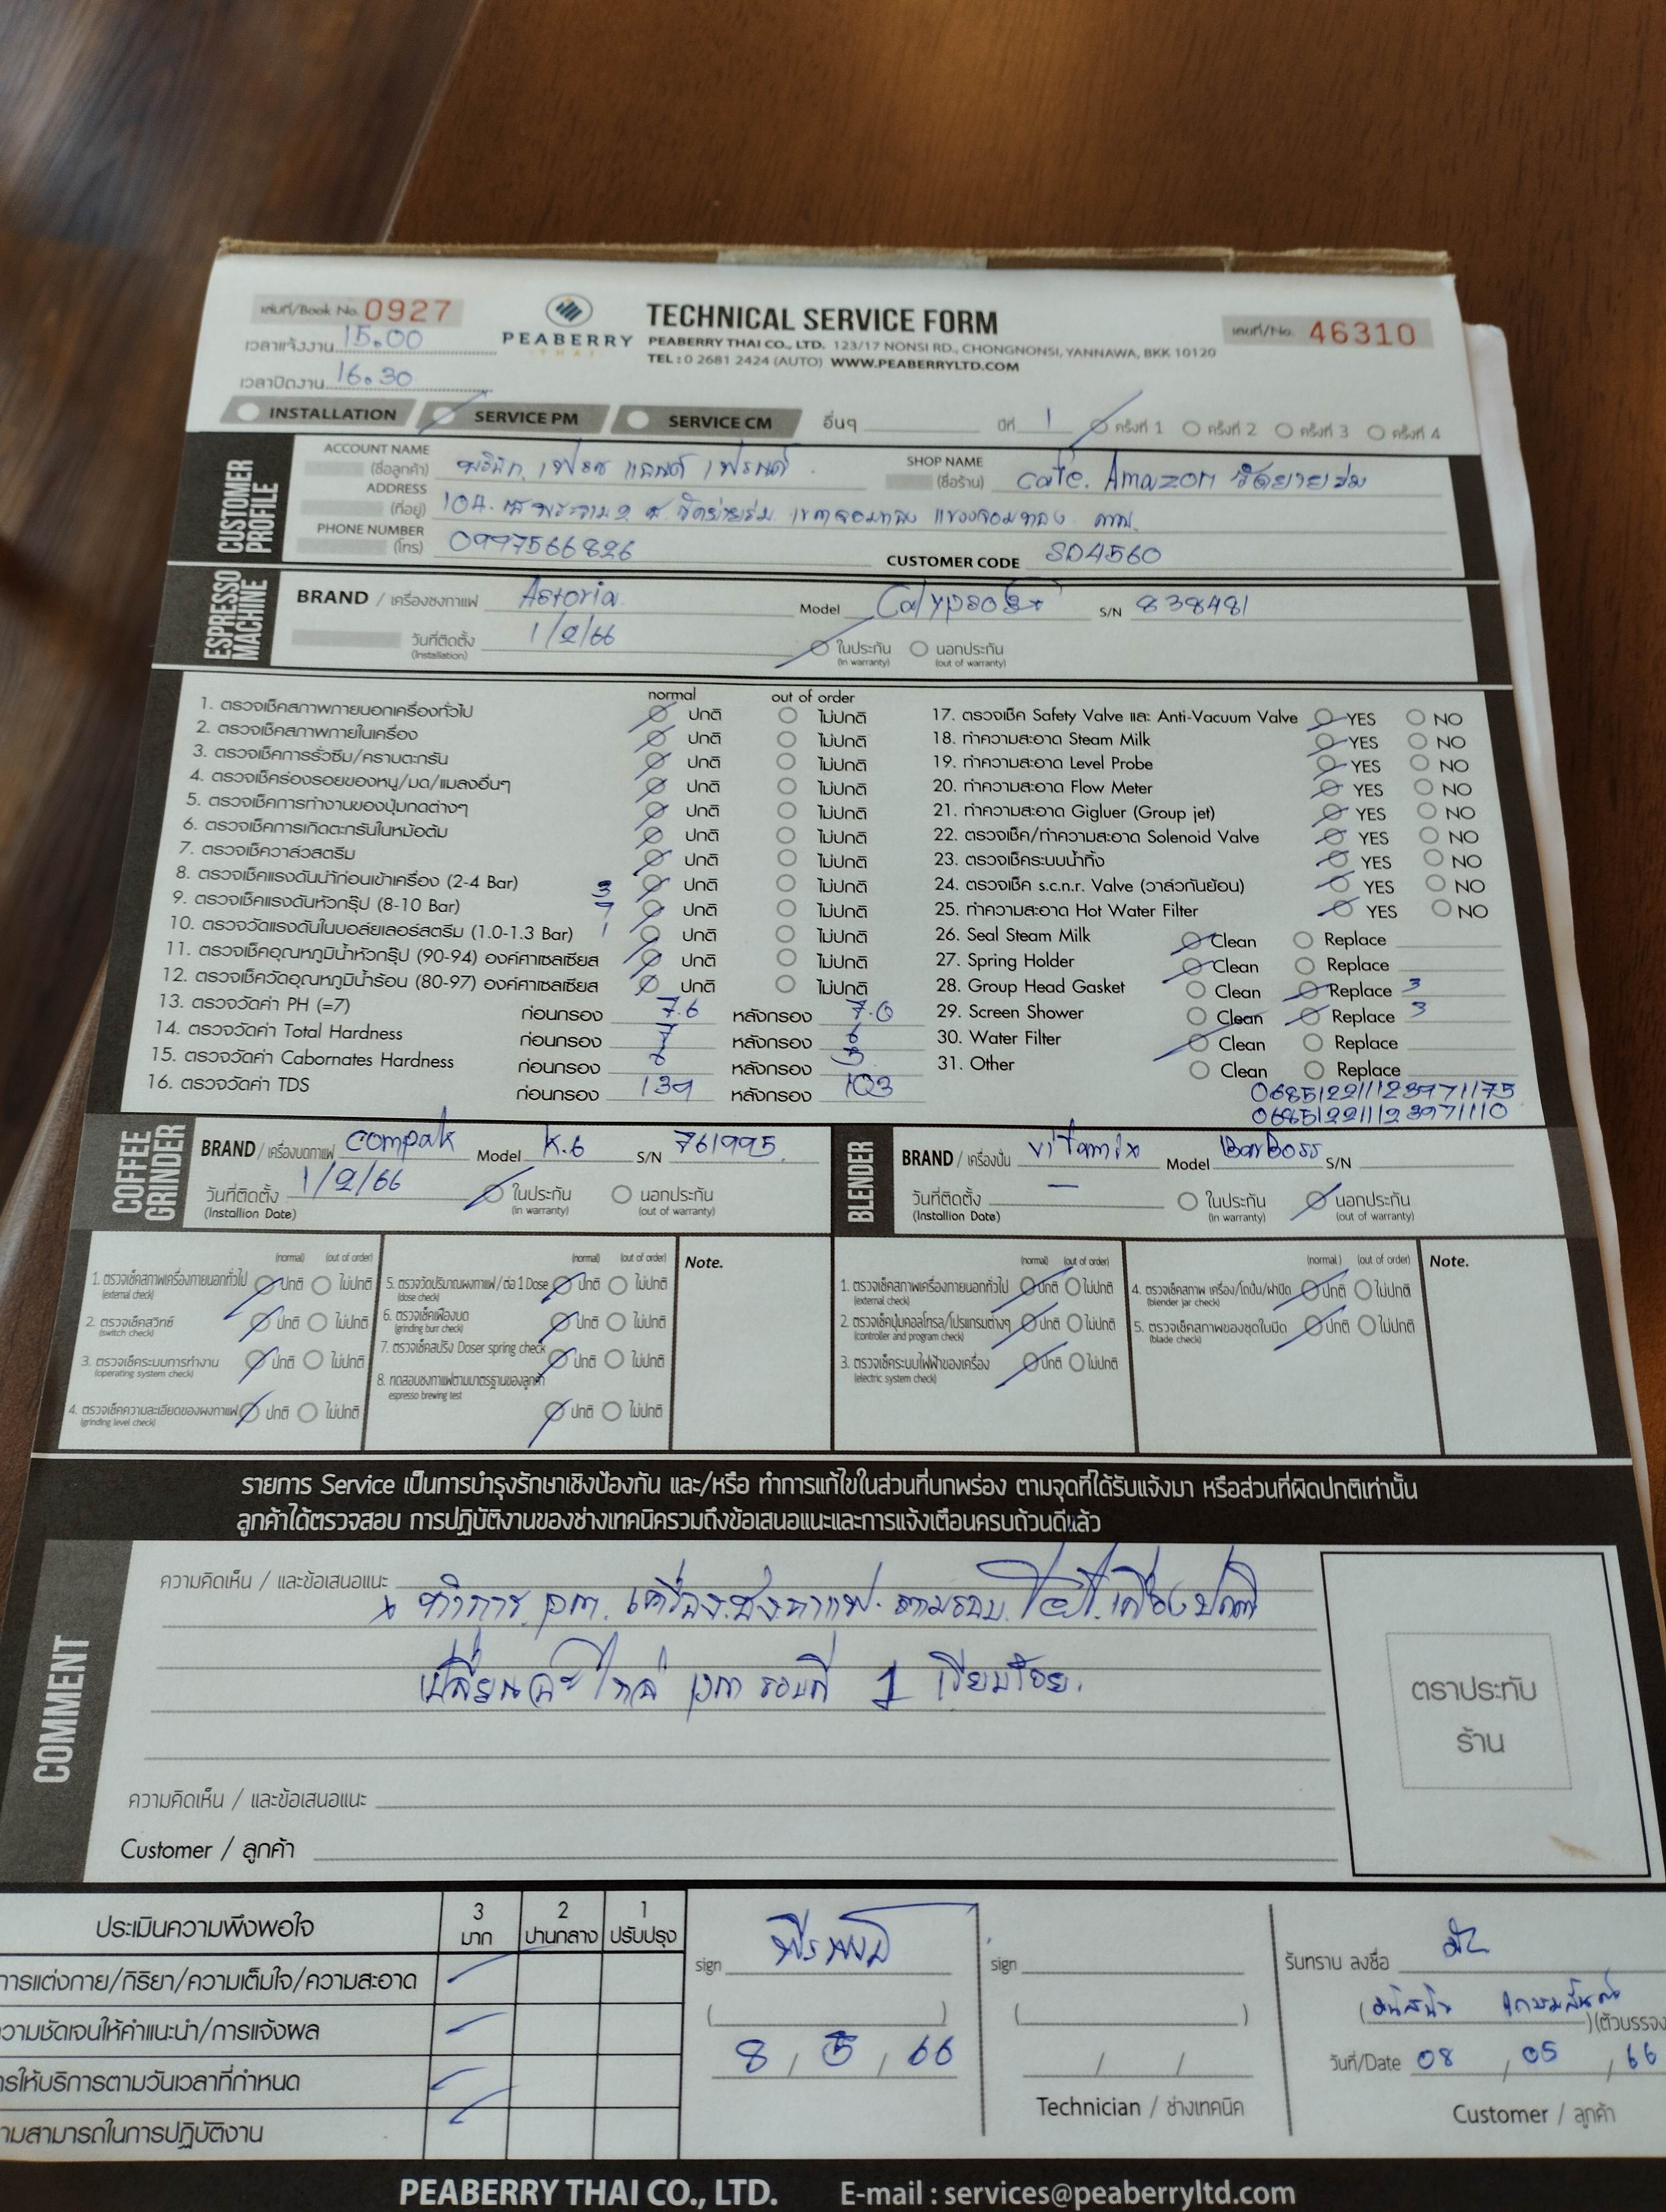 เล่มที่/Book No. 0927
PEABERRY
THAI
TECHNICAL SERVICE FORM
PEABERRY THAI CO., LTD. 123/17 NONSI RD., CHONGNONSI, YANNAWA, BKK 10120
TEL : 0 2681 2424 (AUTO) WWW.PEABERRYLTD.COM
เลขที่/No. 46310
เวลาแจ้งงาน 15.00
เวลาปิดงาน 16.30
INSTALLATION SERVICE PM SERVICE CM อื่นๆ ปีที่ 1 ครั้งที่ 1 ครั้งที่ 2 ครั้งที่ 3 ครั้งที่ 4
CUSTOMER PROFILE
ACCOUNT NAME (ชื่อลูกค้า) เฟรช แอนด์ เฟรนด์ SHOP NAME (ชื่อร้าน) cafe. Amazon วัดยายร่ม
ADDRESS (ที่อยู่) 104. พระราม 2 วัดยายร่ม เขตจอมทอง แขวงจอมทอง กทม.
PHONE NUMBER (โทร) 0997566826 CUSTOMER CODE SD4560
ESPRESSO MACHINE
BRAND / เครื่องชงกาแฟ Astoria Model Calypso S/N 838481
วันที่ติดตั้ง (Installation) 1/2/66 ในประกัน (in warranty) นอกประกัน (out of warranty)
normal out of order
1. ตรวจเช็คสภาพภายนอกเครื่องทั่วไป ปกติ ไม่ปกติ
2. ตรวจเช็คสภาพภายในเครื่อง ปกติ ไม่ปกติ
3. ตรวจเช็คการรั่วซึม/คราบตะกรัน ปกติ ไม่ปกติ
4. ตรวจเช็คร่องรอยของหนู/มด/แมลงอื่นๆ ปกติ ไม่ปกติ
5. ตรวจเช็คการทำงานของปุ่มกดต่างๆ ปกติ ไม่ปกติ
6. ตรวจเช็คการเกิดตะกรันในหม้อต้ม ปกติ ไม่ปกติ
7. ตรวจเช็ควาล์วสตรีม ปกติ ไม่ปกติ
8. ตรวจเช็คแรงดันน้ำก่อนเข้าเครื่อง (2-4 Bar) 3 ปกติ ไม่ปกติ
9. ตรวจเช็คแรงดันหัวกรุ๊ป (8-10 Bar) 9 ปกติ ไม่ปกติ
10. ตรวจวัดแรงดันในบอล์ยเลอร์สตรีม (1.0-1.3 Bar) 1 ปกติ ไม่ปกติ
11. ตรวจเช็คอุณหภูมิน้ำหัวกรุ๊ป (90-94) องค์ศาเซลเซียส ปกติ ไม่ปกติ
12. ตรวจเช็ควัดอุณหภูมิน้ำร้อน (80-97) องค์ศาเซลเซียส ปกติ ไม่ปกติ
13. ตรวจวัดค่า PH (=7) ก่อนกรอง 7.6 หลังกรอง 7.0
14. ตรวจวัดค่า Total Hardness ก่อนกรอง 7 หลังกรอง 6
15. ตรวจวัดค่า Cabornates Hardness ก่อนกรอง 6 หลังกรอง
16. ตรวจวัดค่า TDS ก่อนกรอง 139 หลังกรอง 103
17. ตรวจเช็ค Safety Valve และ Anti-Vacuum Valve YES NO
18. ทำความสะอาด Steam Milk YES NO
19. ทำความสะอาด Level Probe YES NO
20. ทำความสะอาด Flow Meter YES NO
21. ทำความสะอาด Gigluer (Group jet) YES NO
22. ตรวจเช็ค/ทำความสะอาด Solenoid Valve YES NO
23. ตรวจเช็คระบบน้ำทิ้ง YES NO
24. ตรวจเช็ค s.c.n.r. Valve (วาล์วกันย้อน) YES NO
25. ทำความสะอาด Hot Water Filter YES NO
26. Seal Steam Milk Clean Replace
27. Spring Holder Clean Replace
28. Group Head Gasket Clean Replace 3
29. Screen Shower Clean Replace 3
30. Water Filter Clean Replace
31. Other Clean Replace
068512211123971175
068512211123971110
COFFEE GRINDER
BRAND / เครื่องบดกาแฟ compak Model K.6 S/N 761995
วันที่ติดตั้ง (Installion Date) 1/2/66 ในประกัน (in warranty) นอกประกัน (out of warranty)
BLENDER
BRAND / เครื่องปั่น vitamix Model BarBoss S/N
วันที่ติดตั้ง (Installion Date) — ในประกัน (in warranty) นอกประกัน (out of warranty)
(normal) (out of order)
1. ตรวจเช็คสภาพเครื่องภายนอกทั่วไป (external check) ปกติ ไม่ปกติ
2. ตรวจเช็คสวิทซ์ (switch check) ปกติ ไม่ปกติ
3. ตรวจเช็คระบบการทำงาน (operating system check) ปกติ ไม่ปกติ
4. ตรวจเช็คความละเอียดของผงกาแฟ (grinding level check) ปกติ ไม่ปกติ
(normal) (out of order)
5. ตรวจวัดปริมาณผงกาแฟ / ต่อ 1 Dose (dose check) ปกติ ไม่ปกติ
6. ตรวจเช็คเฟืองบด (grinding burr check) ปกติ ไม่ปกติ
7. ตรวจเช็คสปริง Doser spring check ปกติ ไม่ปกติ
8. ทดสอบชงกาแฟตามมาตรฐานของลูกค้า espresso brewing test ปกติ ไม่ปกติ
Note.
(normal) (out of order)
1. ตรวจเช็คสภาพเครื่องภายนอกทั่วไป (external check) ปกติ ไม่ปกติ
2. ตรวจเช็คปุ่มคอลโทรล/โปรแกรมต่างๆ (controller and program check) ปกติ ไม่ปกติ
3. ตรวจเช็คระบบไฟฟ้าของเครื่อง (electric system check) ปกติ ไม่ปกติ
(normal) (out of order)
4. ตรวจเช็คสภาพ เครื่อง/โถปั่น/ฝาปิด (blender jar check) ปกติ ไม่ปกติ
5. ตรวจเช็คสภาพของชุดใบมีด (blade check) ปกติ ไม่ปกติ
Note.
รายการ Service เป็นการบำรุงรักษาเชิงป้องกัน และ/หรือ ทำการแก้ไขในส่วนที่บกพร่อง ตามจุดที่ได้รับแจ้งมา หรือส่วนที่ผิดปกติเท่านั้น
ลูกค้าได้ตรวจสอบ การปฏิบัติงานของช่างเทคนิครวมถึงข้อเสนอแนะและการแจ้งเตือนครบถ้วนดีแล้ว
COMMENT
ความคิดเห็น / และข้อเสนอแนะ
ทำการ pm. เครื่องชงกาแฟ ตามรอบ เครื่องปกติ
เปลี่ยนอะไหล่ pm รอบที่ 1 เรียบร้อย.
ตราประทับ
ร้าน
ความคิดเห็น / และข้อเสนอแนะ
Customer / ลูกค้า
ประเมินความพึงพอใจ 3 มาก 2 ปานกลาง 1 ปรับปรุง
การแต่งกาย/กิริยา/ความเต็มใจ/ความสะอาด
ความชัดเจนให้คำแนะนำ/การแจ้งผล
การให้บริการตามวันเวลาที่กำหนด
ความสามารถในการปฏิบัติงาน
sign
8 / 5 / 66
sign
Technician / ช่างเทคนิค
รับทราบ ลงชื่อ
(ตัวบรรจง
วันที่/Date 08 / 05 / 66
Customer / ลูกค้า
PEABERRY THAI CO., LTD. E-mail : services@peaberryltd.com